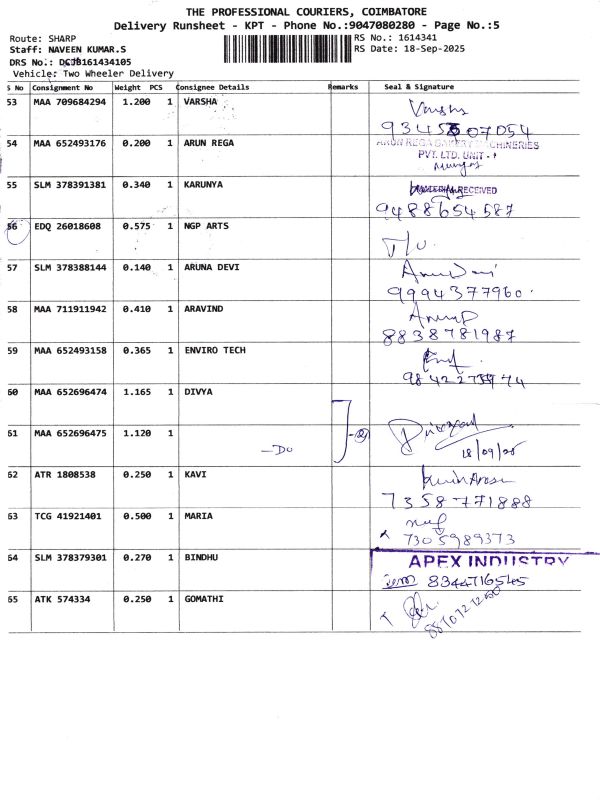 THE PROFESSIONAL COURIERS, COIMBATORE
Delivery Runsheet - KPT - Phone No.:9047080280 - Page No.:5
Route: SHARP
RS No.: 1614341
Staff: NAVEEN KUMAR.S
RS Date: 18-Sep-2025
DRS No.: 161434105
Vehicle: Two Wheeler Delivery
S No Consignment No Weight PCS Consignee Details Remarks Seal & Signature
53 MAA 709684294 1.200 1 VARSHA
Varsha
07054
54 MAA 652493176 0.200 1 ARUN REGA
ARUN REGA BAKERY MACHINERIES
PVT. LTD. UNIT - 1
55 SLM 378391381 0.340 1 KARUNYA
RECEIVED
9488654587
56 EDQ 26018608 0.575 1 NGP ARTS
57 SLM 378388144 0.140 1 ARUNA DEVI
9994377960
58 MAA 711911942 0.410 1 ARAVIND
8838781987
59 MAA 652493158 0.365 1 ENVIRO TECH
60 MAA 652696474 1.165 1 DIVYA
61 MAA 652696475 1.120 1
-Do
18/09/25
62 ATR 1808538 0.250 1 KAVI
7358771888
63 TCG 41921401 0.500 1 MARIA
7305989373
64 SLM 378379301 0.270 1 BINDHU
APEX INDUSTRY
8344716545
65 ATK 574334 0.250 1 GOMATHI